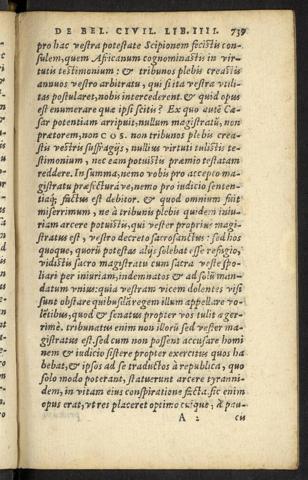 DE BEL. CIVIL. LIB. IIII. 739
pro hac vestra potestate Scipionem fecistis con-
sulem, quem Africanum cognominastis in vir-
tutis testimonium: & tribunos plebis creastis
annuos vestro arbitratu, qui si ita vestra vtili-
tas postularet, nobis intercederent. & quid opus
est enumerare qua ipsi scitis? Ex quo autē Cæ-
sar potentiam arripuit, nullum magistratū, non
prætorem, non COS. non tribunos plebis crea-
stis vestris suffragijs, nullius virtuti tulistis te-
stimonium, nec eam potuistis præmio testatam
reddere. In summa, nemo vobis pro accepto ma-
gistratu præfecturáve, nemo pro iudicio senten-
tiaq; factus est debitor. & quod omnium fuit
miserrimum, ne à tribunis plebis quidem iniu-
riam arcere potuistis, qui vester proprius magi-
stratus est, vestro decreto sacrosanctus: sed hos
quoque, quorū potestas alijs solebat esse refugio,
vidistis sacro magistratu cum sacra veste spo-
liari per iniuriam, indemnatos & ad solū man-
datum vnius: quia vestram vicem dolentes visi
sunt obstare quibusdā regem illum appellare vo-
lētibus, quod & senatus propter vos tulit æger-
rimè. tribunatus enim non illorū sed vester ma-
gistratus est. sed cum non possent accusare homi
nem & iudicio sistere propter exercitus quos ha
bebat, & ipsos ad se traductos à republica, quo
solo modo poterant, statuerunt arcere tyranni-
dem, in vitam eius conspiratione facta. sic enim
opus erat, vt res placeret optimo cuique, à pau-
A 2 cis